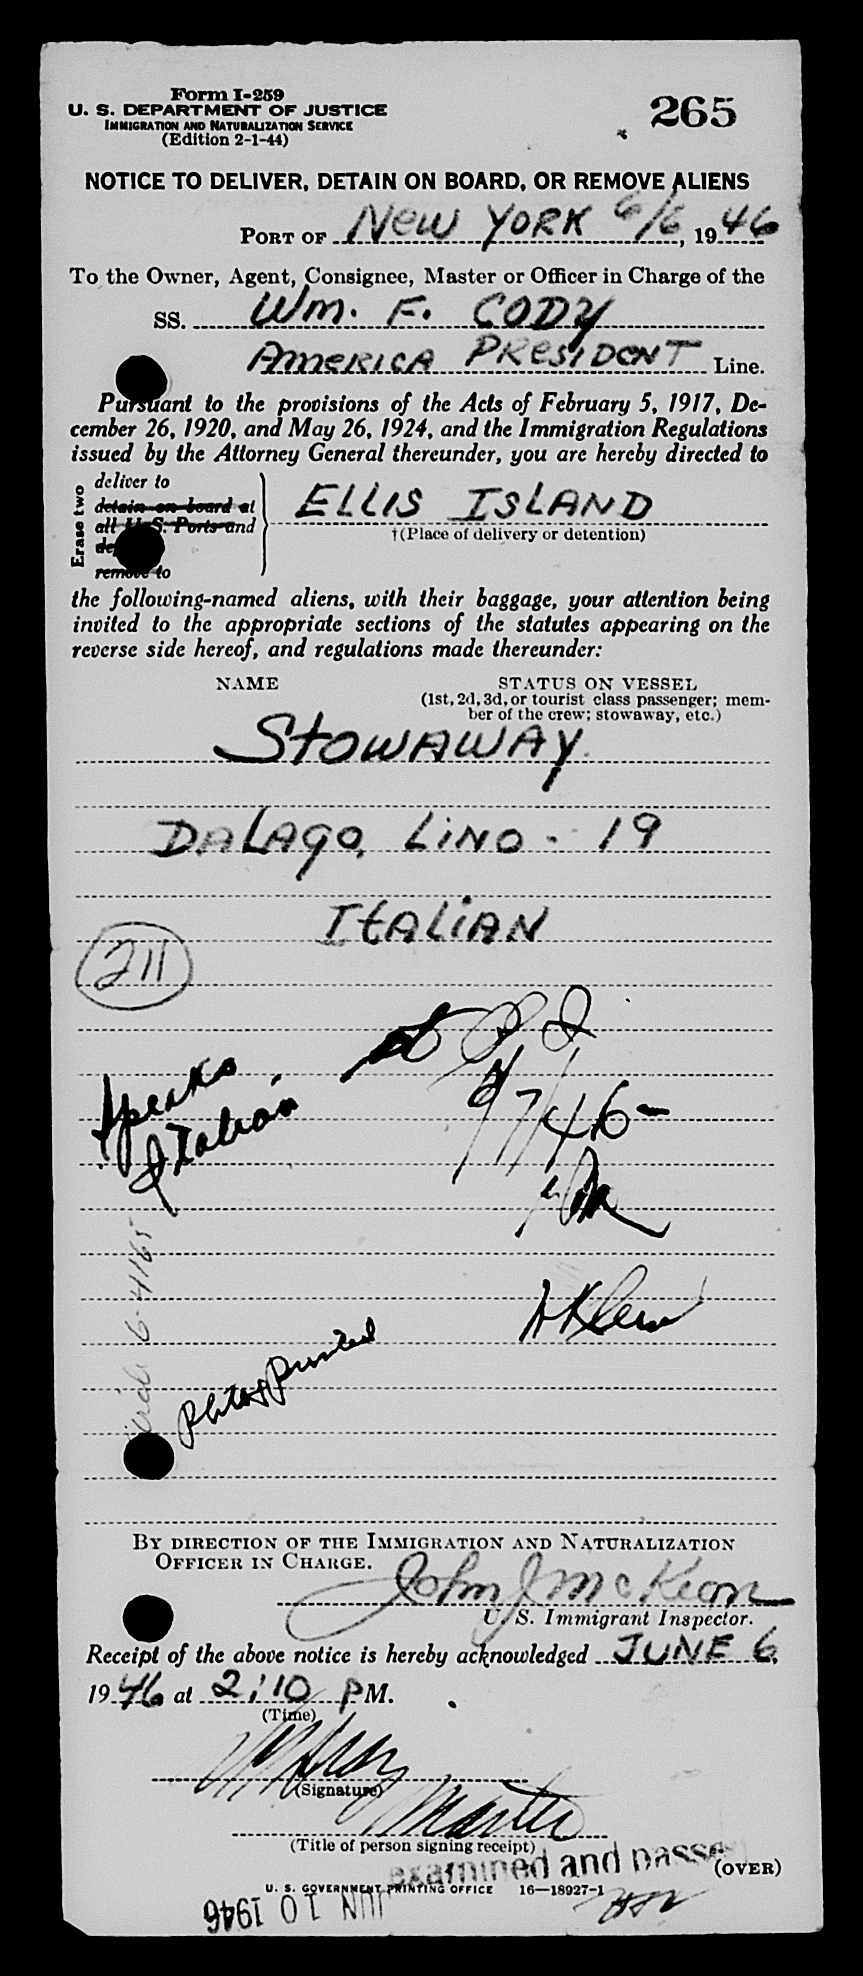 Form I-259
U. S. DEPARTMENT OF JUSTICE
IMMIGRATION AND NATURALIZATION SERVICE
(Edition 2-1-44)
265
NOTICE TO DELIVER, DETAIN ON BOARD, OR REMOVE ALIENS
PORT OF New YORK 6/6, 1946
To the Owner, Agent, Consignee, Master or Officer in Charge of the
SS. Wm. F. CODY
AmericA PResiDeNT Line.
Pursuant to the provisions of the Acts of February 5, 1917, De-
cember 26, 1920, and May 26, 1924, and the Immigration Regulations
issued by the Attorney General thereunder, you are hereby directed to
Erase two
deliver to
detain on board at
all U. S. Ports and
remove to
ELLIS ISLAND
†(Place of delivery or detention)
the following-named aliens, with their baggage, your attention being
invited to the appropriate sections of the statutes appearing on the
reverse side hereof, and regulations made thereunder:
NAME
STATUS ON VESSEL
(1st, 2d, 3d, or tourist class passenger; mem-
ber of the crew; stowaway, etc.)
StowAwAy
DALAgo, LiNO - 19
ItALiAN
211
Speaks
Italian
at
6/7/46-
6-4165
H Klein
Photo & Printed
BY DIRECTION OF THE IMMIGRATION AND NATURALIZATION
OFFICER IN CHARGE.
John J McKeon
U. S. Immigrant Inspector.
Receipt of the above notice is hereby acknowledged JUNE 6,
1946 at 2:10 P M.
(Time)
(Signature)
Master
(Title of person signing receipt)
examined and passe
(OVER)
U. S. GOVERNMENT PRINTING OFFICE 16—18927-1
JUN 10 1946